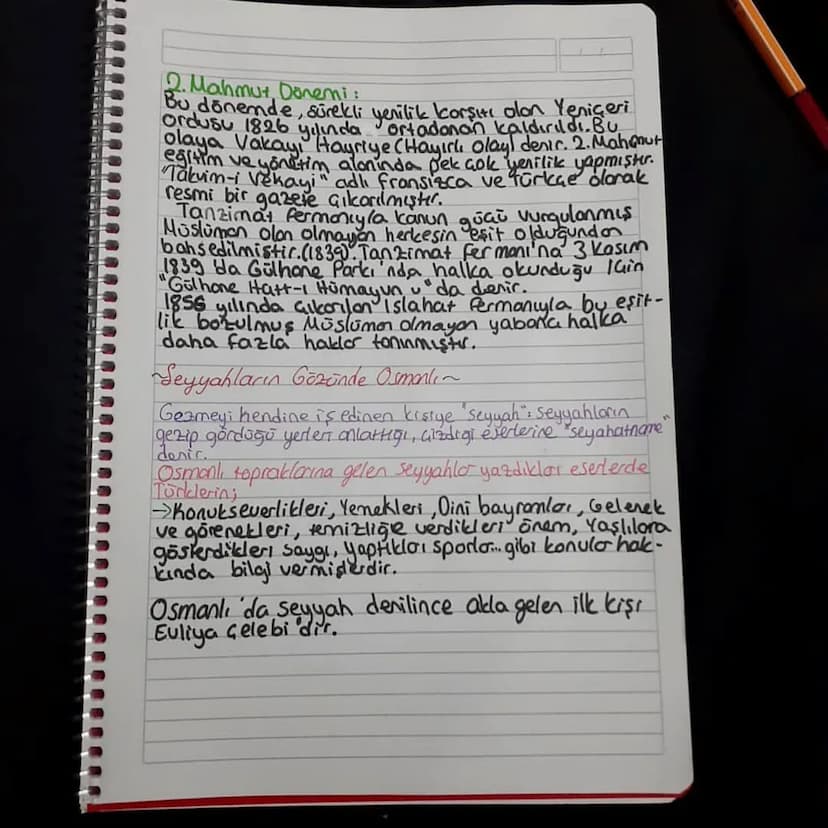 2. Mahmut Dönemi:
Bu dönemde, sürekli yenilik karşıtı olan Yeniçeri
ordusu 1826 yılında ortadanan kaldırıldı. Bu
olaya Vakayı Hayriye (Hayırlı olay) denir. 2. Mahmut
eğitim ve yönetim alanında pek çok yenilik yapmıştır.
"Takvim-i Vekayi" adlı Fransızca ve Türkçe olarak
resmi bir gazete çıkarılmıştır.
Tanzimat Fermanıyla kanun gücü vurgulanmış
Müslüman olan olmayan herkesin eşit olduğundan
bahsedilmiştir.(1839). Tanzimat Fermanı'na 3 Kasım
1839'da Gülhane Parkı'nda halka okunduğu için
"Gülhane Hatt-ı Hümayun u" da denir.
1856 yılında çıkarılan Islahat Fermanıyla bu eşit-
lik bozulmuş Müslüman olmayan yabancı halka
daha fazla haklar tanınmıştır.
~Seyyahların Gözünde Osmanlı~
Gezmeyi kendine iş edinen kişiye "seyyah": seyyahların
gezip gördüğü yerleri anlattığı, çizdiği eserlerine "seyahatname"
denir.
Osmanlı topraklarına gelen seyyahlar yazdıkları eserlerde
Türklerin;
→Konukseverlikleri, Yemekleri, Dini bayramları, Gelenek
ve görenekleri, temizliğe verdikleri önem, Yaşlılara
gösterdikleri saygı, yaptıkları sporlar... gibi konular hak-
kında bilgi vermişlerdir.
Osmanlı'da seyyah denilince akla gelen ilk kişi
Euliya Çelebi'dir.